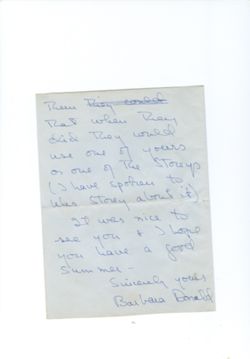 Them ~~they could~~
that when they
did they would
use one of yours
or one of the Storeys
(I have spoken to
Mrs Storey about it)
It was nice to
see you & I hope
you have a good
Summer -
Sincerely yours
Barbara Donald